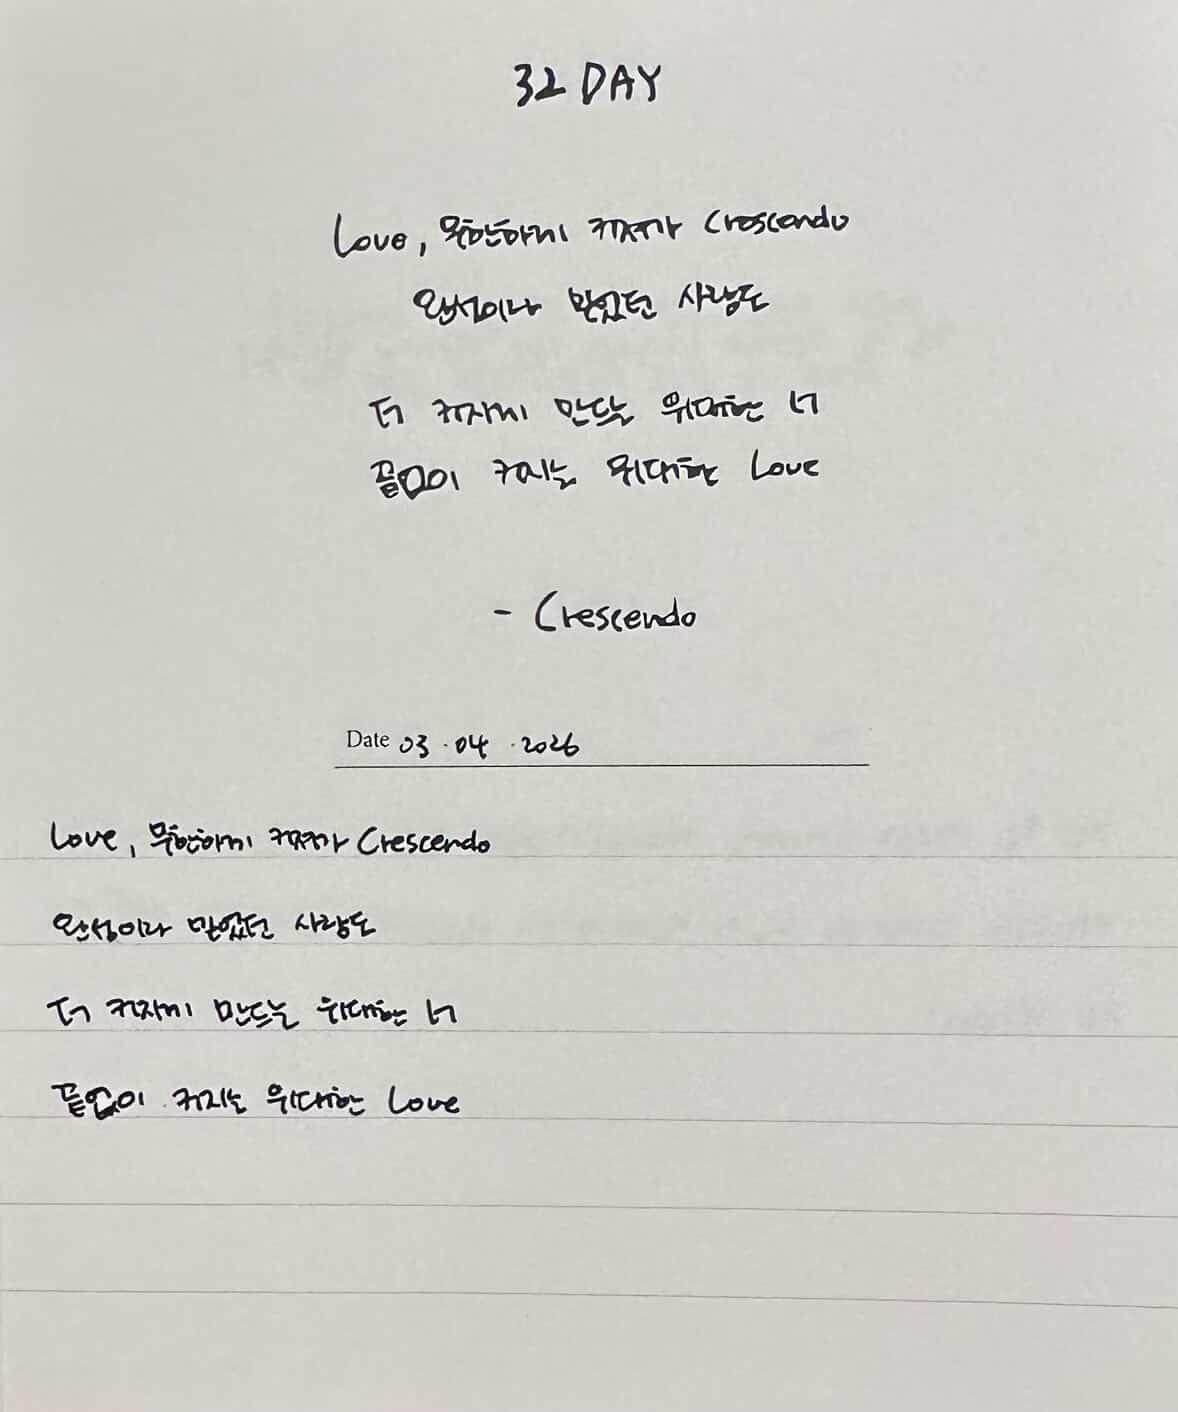 32 DAY
Love, 무한하게 커져가 Crescendo
완성이라 믿었던 사랑도
더 커지게 만드는 위대한 너
끝없이 커지는 위대한 Love
- Crescendo
Date 03.04.2026
Love, 무한하게 커져가 Crescendo
완성이라 믿었던 사랑도
더 커지게 만드는 위대한 너
끝없이 커지는 위대한 Love